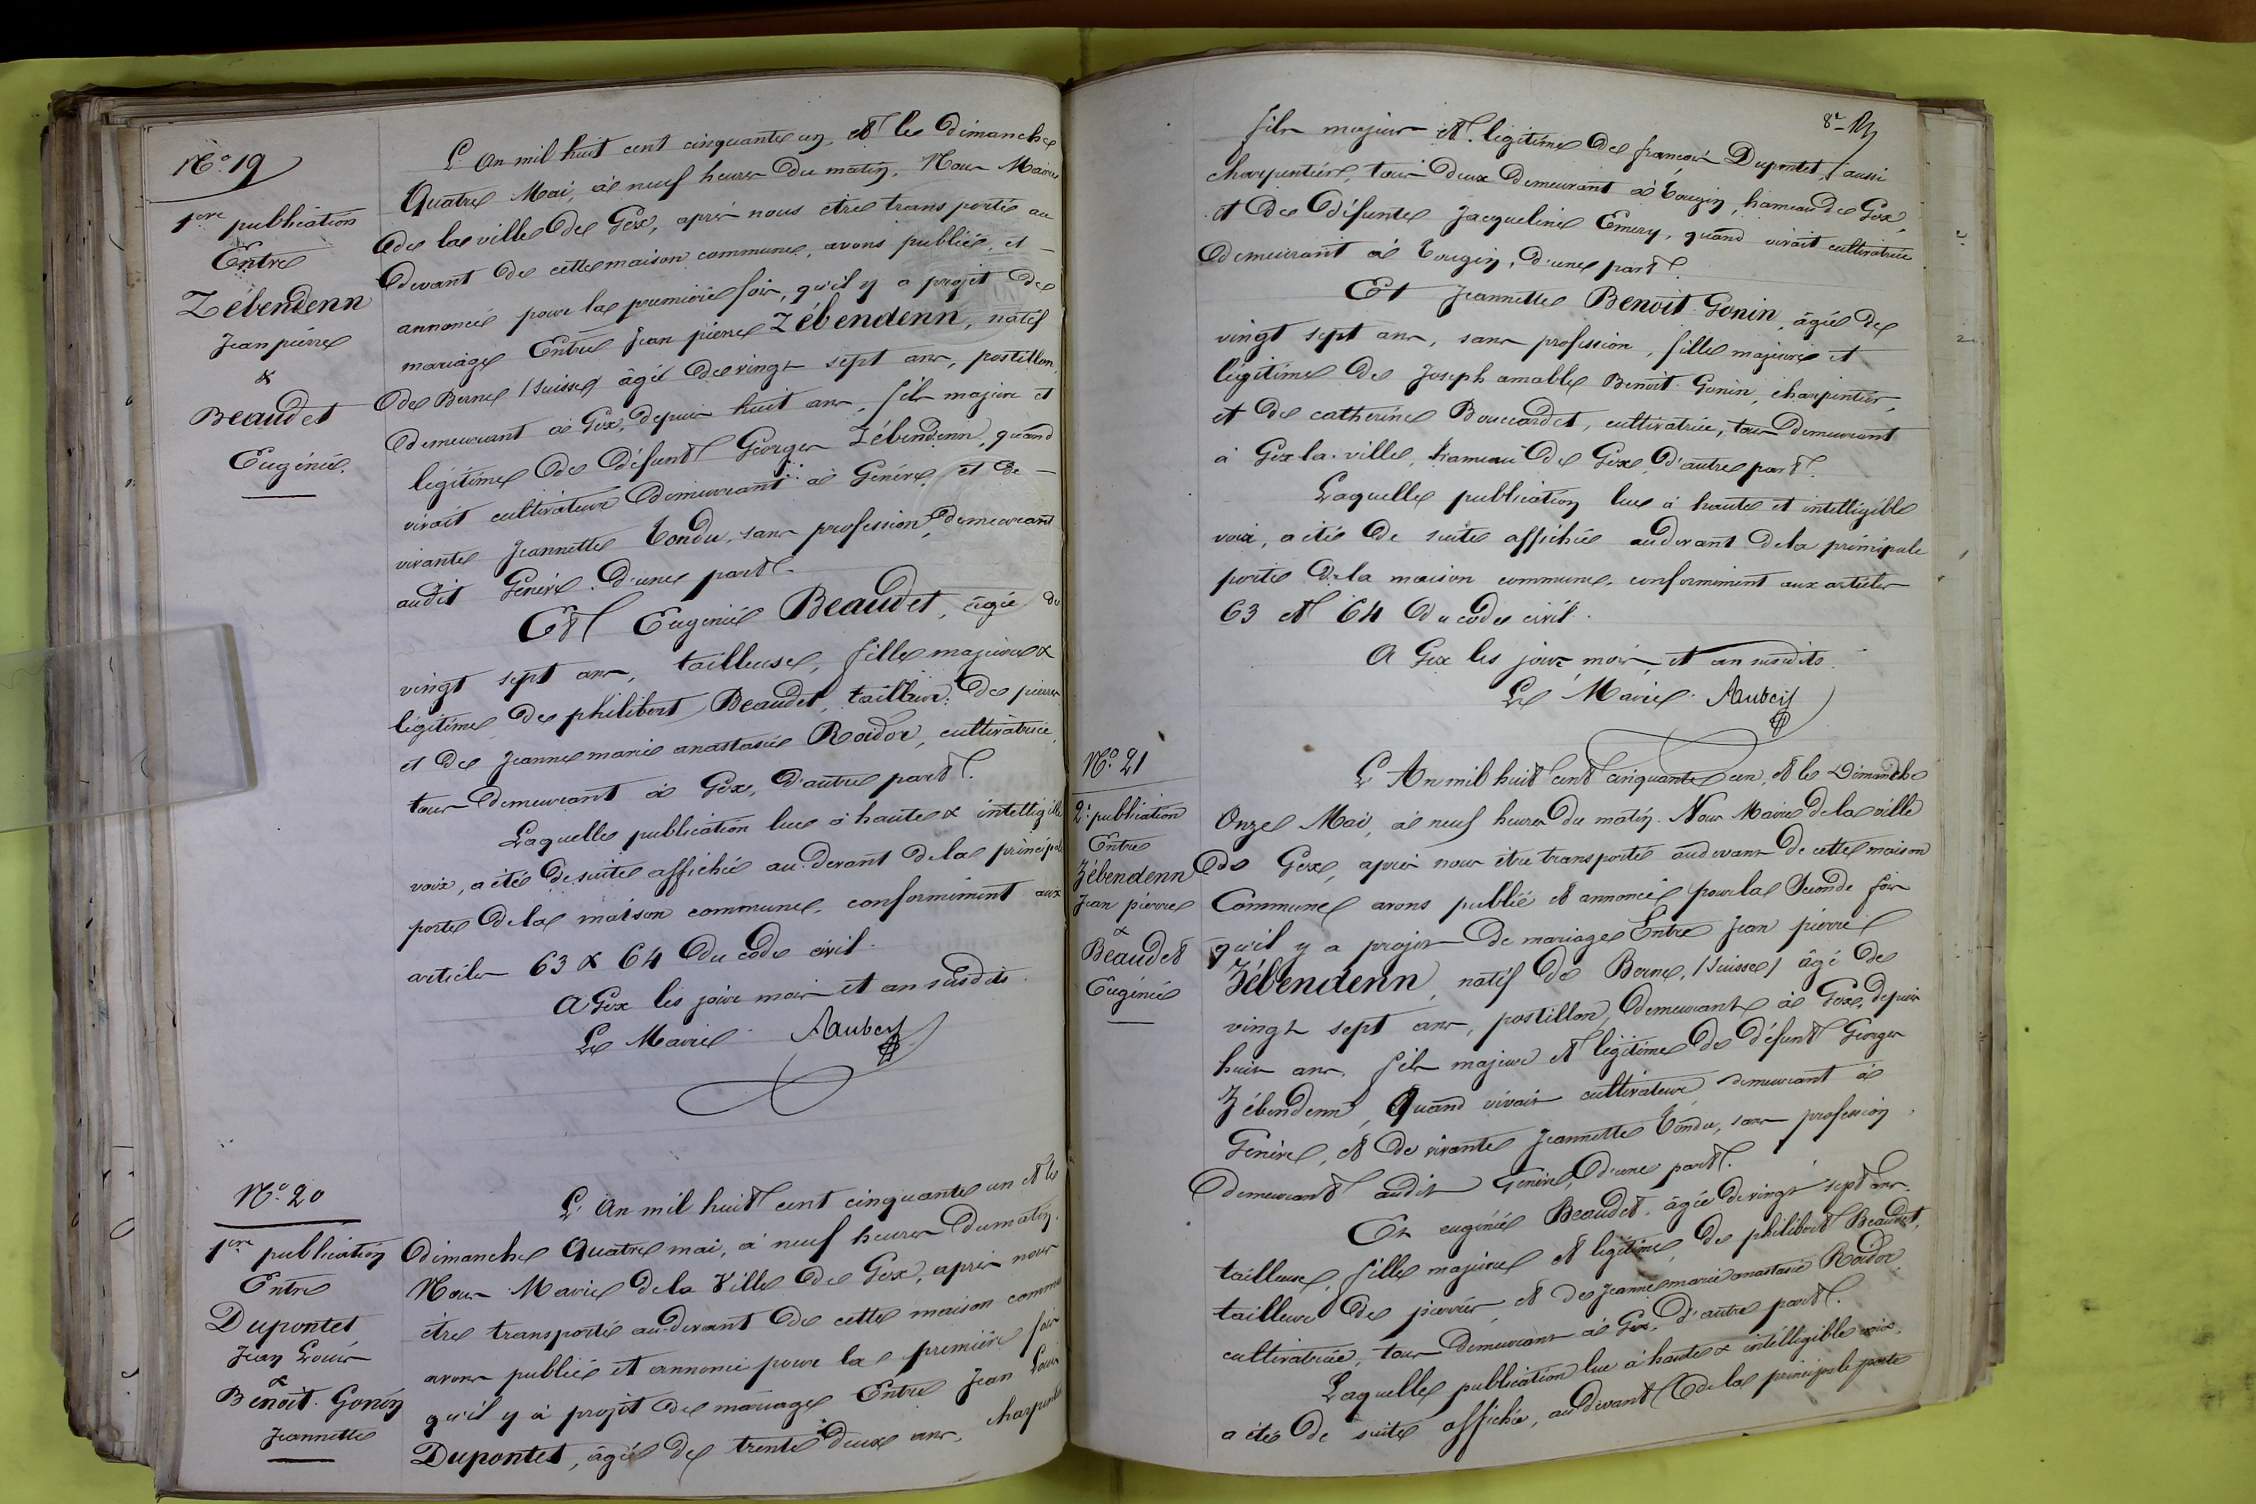 N.° 19
1ère publication
Entre
Zébendenn
Jean pierre
&
Beaudet
Eugénie.
L'An mil huit cent cinquante un, et le Dimanche
Quatre Mai, à neuf heures du matin, Nous Maire
de la ville de Gex, après nous être transporté au
devant de cette maison commune, avons publié et
annoncé pour la première fois, qu'il y a projet de
mariage Entre Jean pierre Zébendenn, natif
de Berne (Suisse) âgé de vingt sept ans, postillon,
demeurant à Gex, depuis huit ans, fils majeur et
légitime de défunt Georges Zébendenn, quand
vivait cultivateur demeurant à Genève, et de
vivante Jeannette Tondu, sans profession, demeurant
audit Genève d'une part.
Et Eugénie Beaudet, âgée de
vingt sept ans, tailleuse, fille majeure &
légitime de philibert Beaudet, tailleur de pierres
et de Jeanne marie anastasie Roidor, cultivatrice,
tous demeurant à Gex, d'autre part.
Laquelle publication lue à haute & intelligible
voix, a été de suite affichée au devant de la principale
porte de la maison commune, conformément aux
articles 63 & 64 du code civil.
A Gex les jour mois et an susdits.
Le Maire Aubery
N.° 20
1ère publication
Entre
Dupontet
Jean Louis
&
Benoit-Gonin
Jeannette
L'An mil huit cent cinquante un et le
dimanche Quatre mai, à neuf heures du matin.
Nous Maire de la Ville de Gex, après nous
être transporté au devant de cette maison commune
avons publié et annoncé pour la première fois
qu'il y a projet de mariage Entre Jean Louis
Dupontet, âgé de trente deux ans, charpentier
8e
fils majeur et légitime de françois Dupontet, aussi
charpentier, tous deux demeurant à Tougin, hameau de Gex,
et de défunte Jacqueline Emery, quand vivait cultivatrice
demeurant à Tougin, d'une part.
Et Jeannette Benoit-Gonin, âgée de
vingt sept ans, sans profession, fille majeure et
légitime de Joseph amable Benoit-Gonin, charpentier,
et de catherine Bouccardet, cultivatrice, tous demeurant
à Gex-la-ville, hameau de Gex, d'autre part.
Laquelle publication lue à haute et intelligible
voix, a été de suite affichée au devant de la principale
porte de la maison commune, conformément aux articles
63 et 64 du code civil.
A Gex les jour mois et an susdits.
Le Maire Aubery
N.° 21
2e publication
Entre
Zébendenn
Jean pierre
&
Beaudet
Eugénie
L'An mil huit cent cinquante un, et le Dimanche
Onze Mai, à neuf heures du matin. Nous Maire de la ville
de Gex, après nous être transporté au devant de cette maison
Commune avons publié et annoncé pour la Seconde fois
qu'il y a projet de mariage Entre Jean pierre
Zébendenn, natif de Berne, (Suisse) âgé de
vingt sept ans, postillon, demeurant à Gex, depuis
huit ans, fils majeur et légitime de défunt Georges
Zébendenn, Quand vivait cultivateur demeurant à
Genève, et de vivante Jeannette Tondu, sans profession,
demeurant audit Genève, d'une part.
Et eugénie Beaudet, âgée de vingt sept ans,
tailleuse, fille majeure et légitime de philibert Beaudet,
tailleur de pierres, et de Jeanne marie anastasie Roidor,
cultivatrice, tous demeurant à Gex, d'autre part.
Laquelle publication lue à haute & intelligible voix,
a été de suite affichée, au devant de la principale porte